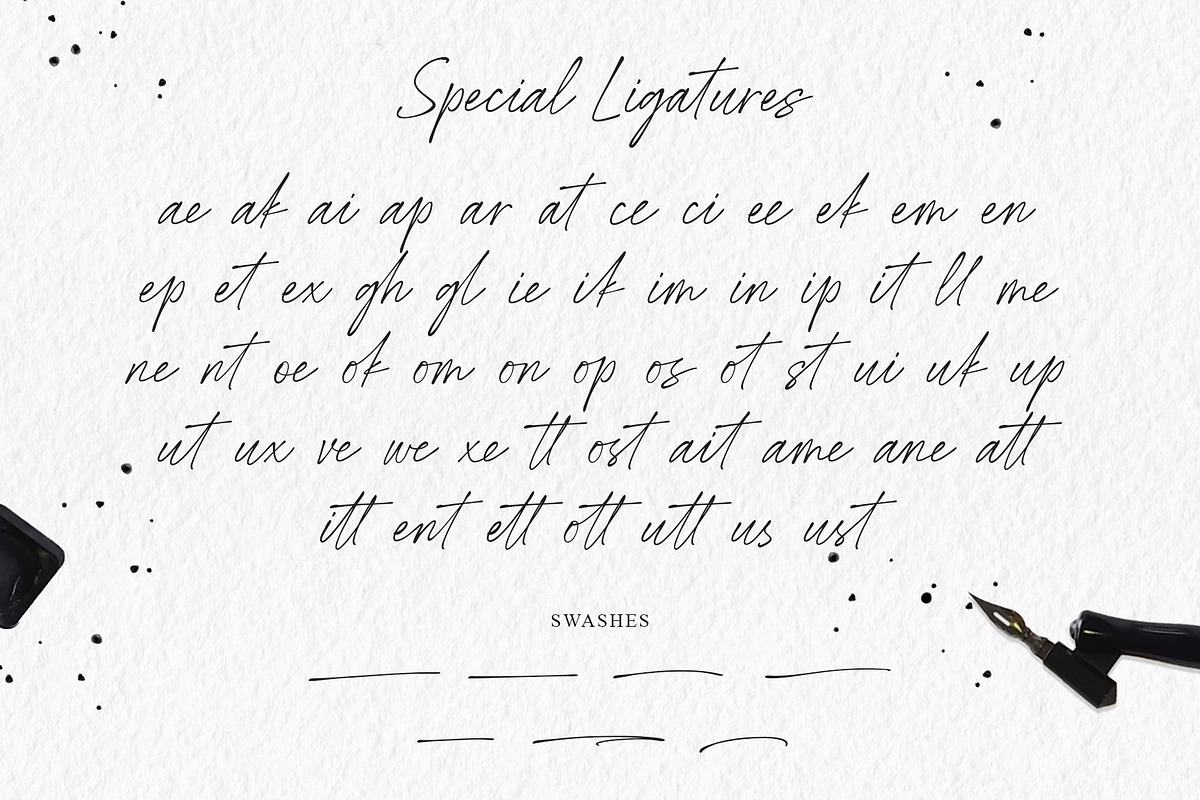 Special Ligatures
ae ak ai ap ar at ce ci ee ek em en
ep et ex gh gl ie ik im in ip it ll me
ne nt oe ok om on op os ot st ui uk up
ut ux ve we xe tt ost ait ame ane att
itt ent ett ott utt us ust
SWASHES